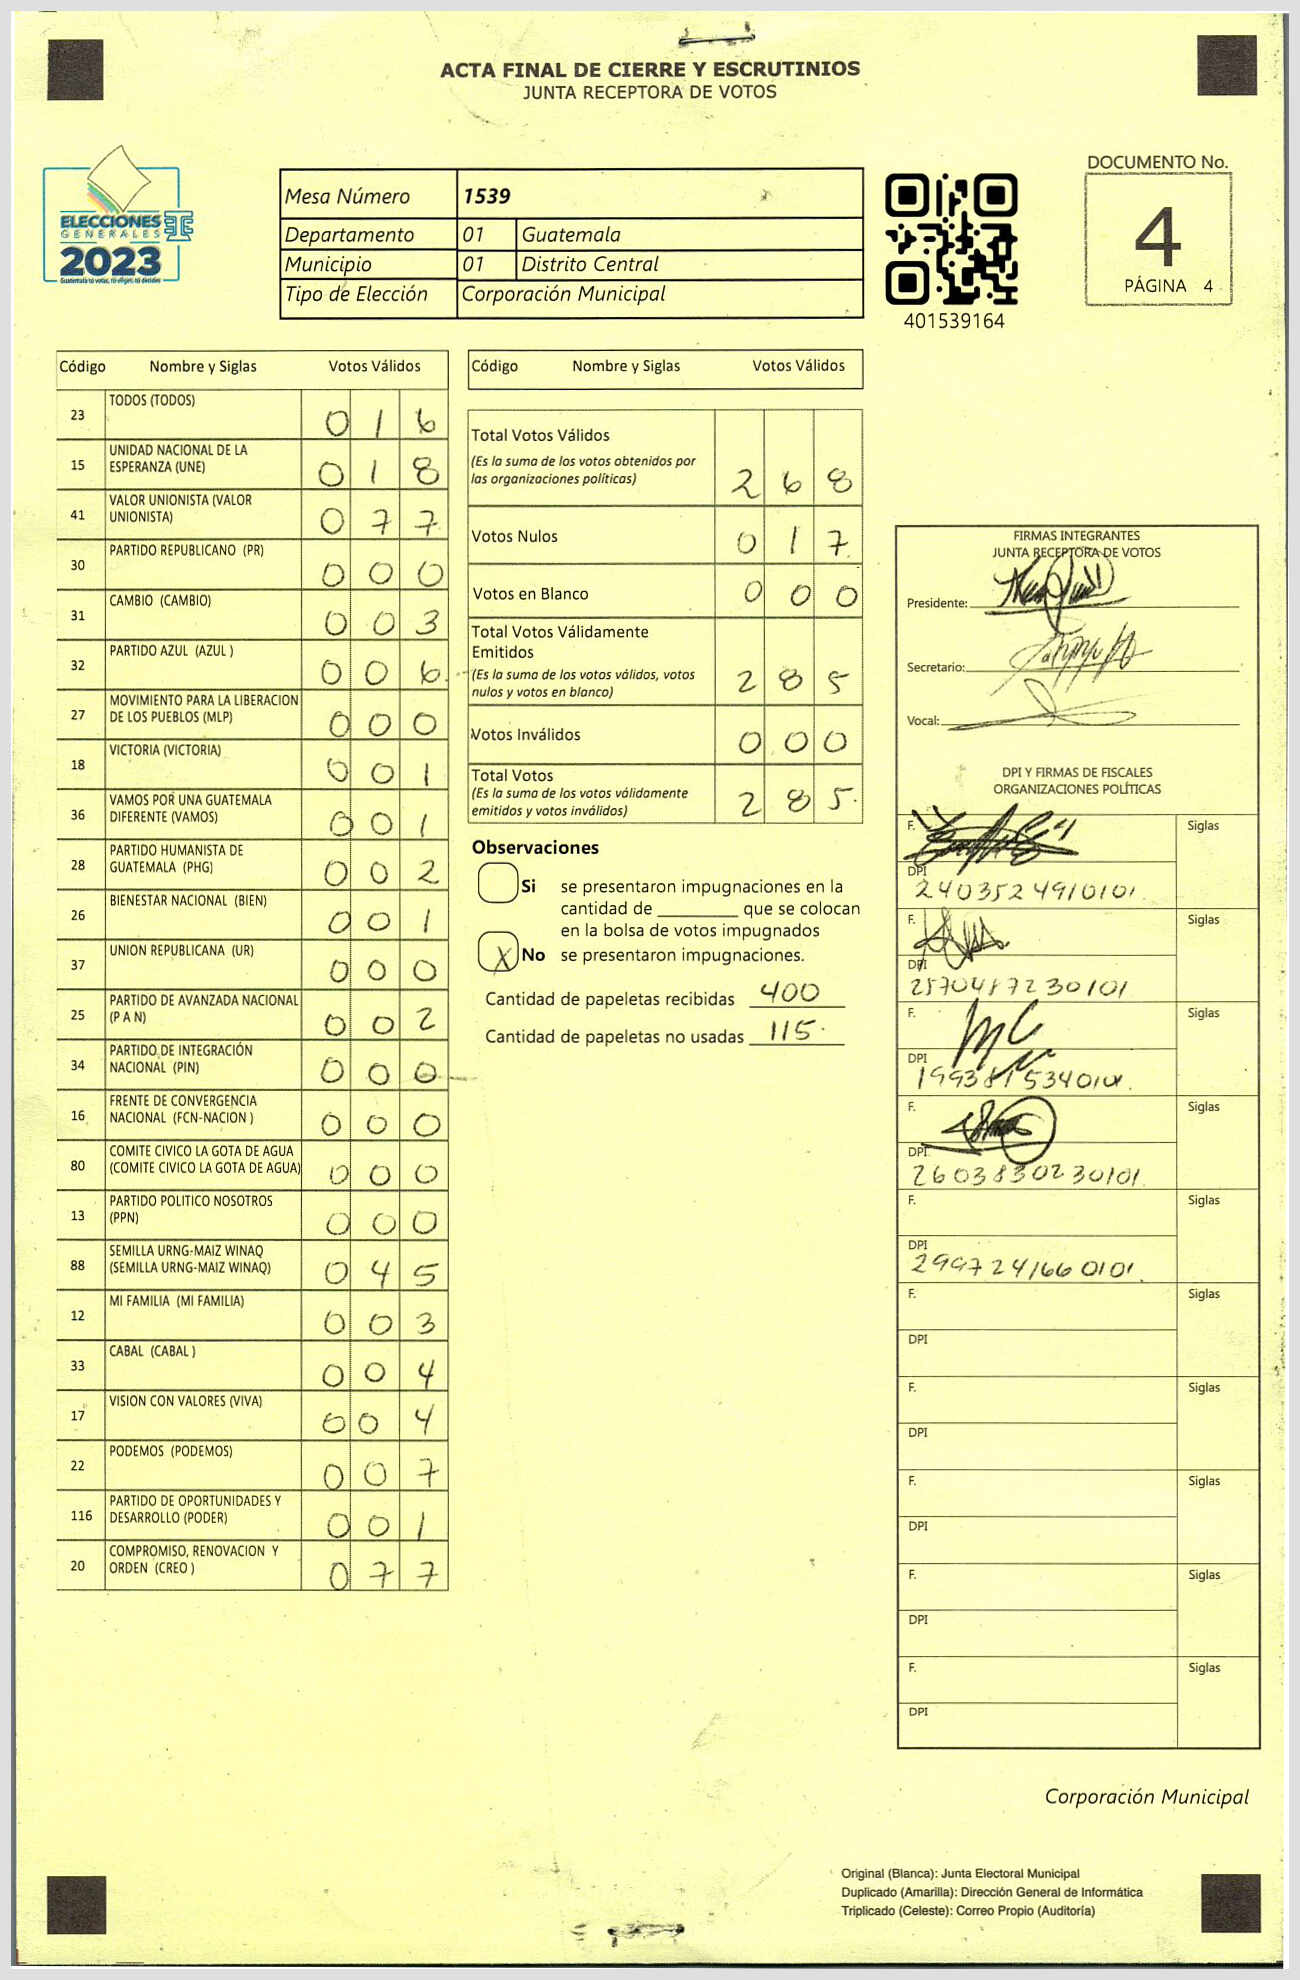 ACTA FINAL DE CIERRE Y ESCRUTINIOS
JUNTA RECEPTORA DE VOTOS
ELECCIONES
GENERALES
2023
Guatemala tú votas, tú eliges, tú decides
Mesa Número 1539
Departamento 01 Guatemala
Municipio 01 Distrito Central
Tipo de Elección Corporación Municipal
401539164
DOCUMENTO No.
4
PÁGINA 4
Código Nombre y Siglas Votos Válidos
23 TODOS (TODOS) 0 1 6
15 UNIDAD NACIONAL DE LA
ESPERANZA (UNE) 0 1 8
41 VALOR UNIONISTA (VALOR
UNIONISTA) 0 7 7
30 PARTIDO REPUBLICANO (PR) 0 0 0
31 CAMBIO (CAMBIO) 0 0 3
32 PARTIDO AZUL (AZUL ) 0 0 6
27 MOVIMIENTO PARA LA LIBERACION
DE LOS PUEBLOS (MLP) 0 0 0
18 VICTORIA (VICTORIA) 0 0 1
36 VAMOS POR UNA GUATEMALA
DIFERENTE (VAMOS) 0 0 1
28 PARTIDO HUMANISTA DE
GUATEMALA (PHG) 0 0 2
26 BIENESTAR NACIONAL (BIEN) 0 0 1
37 UNION REPUBLICANA (UR) 0 0 0
25 PARTIDO DE AVANZADA NACIONAL
(P A N) 0 0 2
34 PARTIDO DE INTEGRACIÓN
NACIONAL (PIN) 0 0 0
16 FRENTE DE CONVERGENCIA
NACIONAL (FCN-NACION ) 0 0 0
80 COMITE CIVICO LA GOTA DE AGUA
(COMITE CIVICO LA GOTA DE AGUA) 0 0 0
13 PARTIDO POLITICO NOSOTROS
(PPN) 0 0 0
88 SEMILLA URNG-MAIZ WINAQ
(SEMILLA URNG-MAIZ WINAQ) 0 4 5
12 MI FAMILIA (MI FAMILIA) 0 0 3
33 CABAL (CABAL ) 0 0 4
17 VISION CON VALORES (VIVA) 0 0 4
22 PODEMOS (PODEMOS) 0 0 7
116 PARTIDO DE OPORTUNIDADES Y
DESARROLLO (PODER) 0 0 1
20 COMPROMISO, RENOVACION Y
ORDEN (CREO ) 0 7 7
Código Nombre y Siglas Votos Válidos
Total Votos Válidos
(Es la suma de los votos obtenidos por
las organizaciones políticas) 2 6 8
Votos Nulos 0 1 7
Votos en Blanco 0 0 0
Total Votos Válidamente
Emitidos
(Es la suma de los votos válidos, votos
nulos y votos en blanco) 2 8 5
Votos Inválidos 0 0 0
Total Votos
(Es la suma de los votos válidamente
emitidos y votos inválidos) 2 8 5.
Observaciones
Si se presentaron impugnaciones en la
cantidad de ________ que se colocan
en la bolsa de votos impugnados
X No se presentaron impugnaciones.
Cantidad de papeletas recibidas 400
Cantidad de papeletas no usadas 115.
FIRMAS INTEGRANTES
JUNTA RECEPTORA DE VOTOS
Presidente:
Secretario:
Vocal:
DPI Y FIRMAS DE FISCALES
ORGANIZACIONES POLÍTICAS
F. Siglas
DPI
2403524910101.
F. Siglas
DPI
2570487230101
F. Siglas
DPI
F. Siglas
DPI
2603830230101.
F. Siglas
DPI
2997241660101.
F. Siglas
DPI
F. Siglas
DPI
F. Siglas
DPI
F. Siglas
DPI
F. Siglas
DPI
Corporación Municipal
Original (Blanca): Junta Electoral Municipal
Duplicado (Amarilla): Dirección General de Informática
Triplicado (Celeste): Correo Propio (Auditoría)